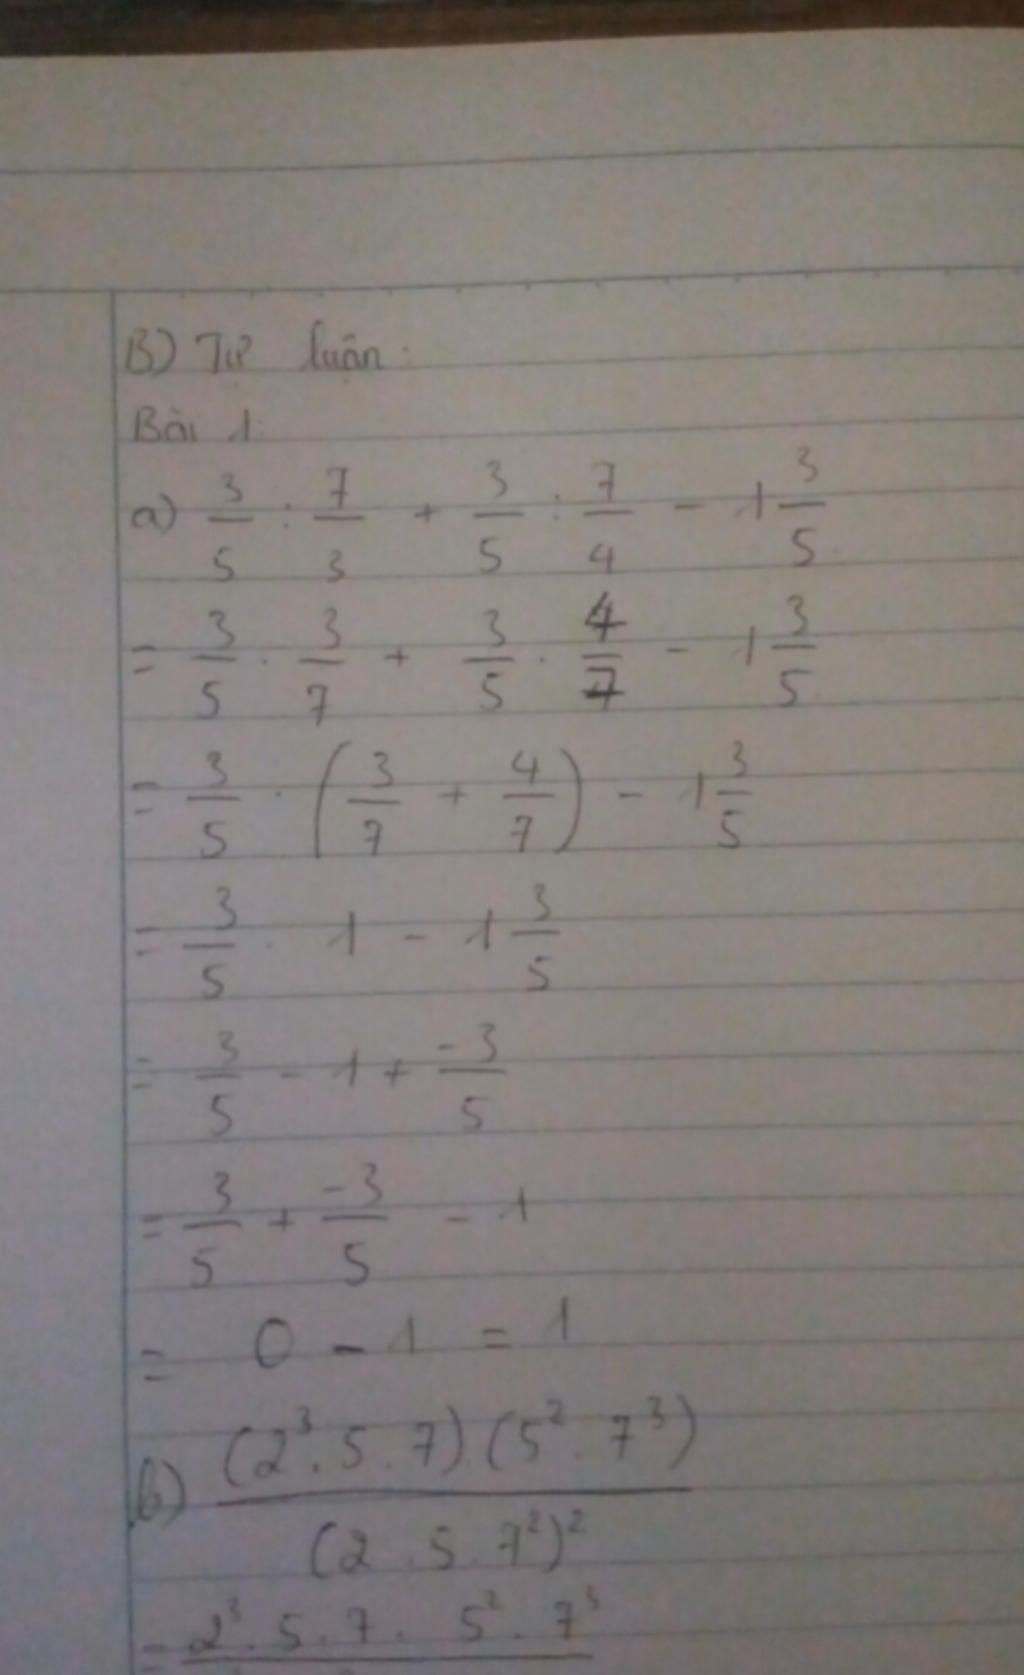 B) Tự luận:
Bài 1:
a) 3/5 : 7/3 + 3/5 : 7/4 - 1 3/5
= 3/5 . 3/7 + 3/5 . 4/7 - 1 3/5
= 3/5 . (3/7 + 4/7) - 1 3/5
= 3/5 . 1 - 1 3/5
= 3/5 - 1 + -3/5
= 3/5 + -3/5 - 1
= 0 - 1 = 1
b) (2³.5.7).(5².7³) / (2.5.7²)²
= 2³.5.7.5².7³